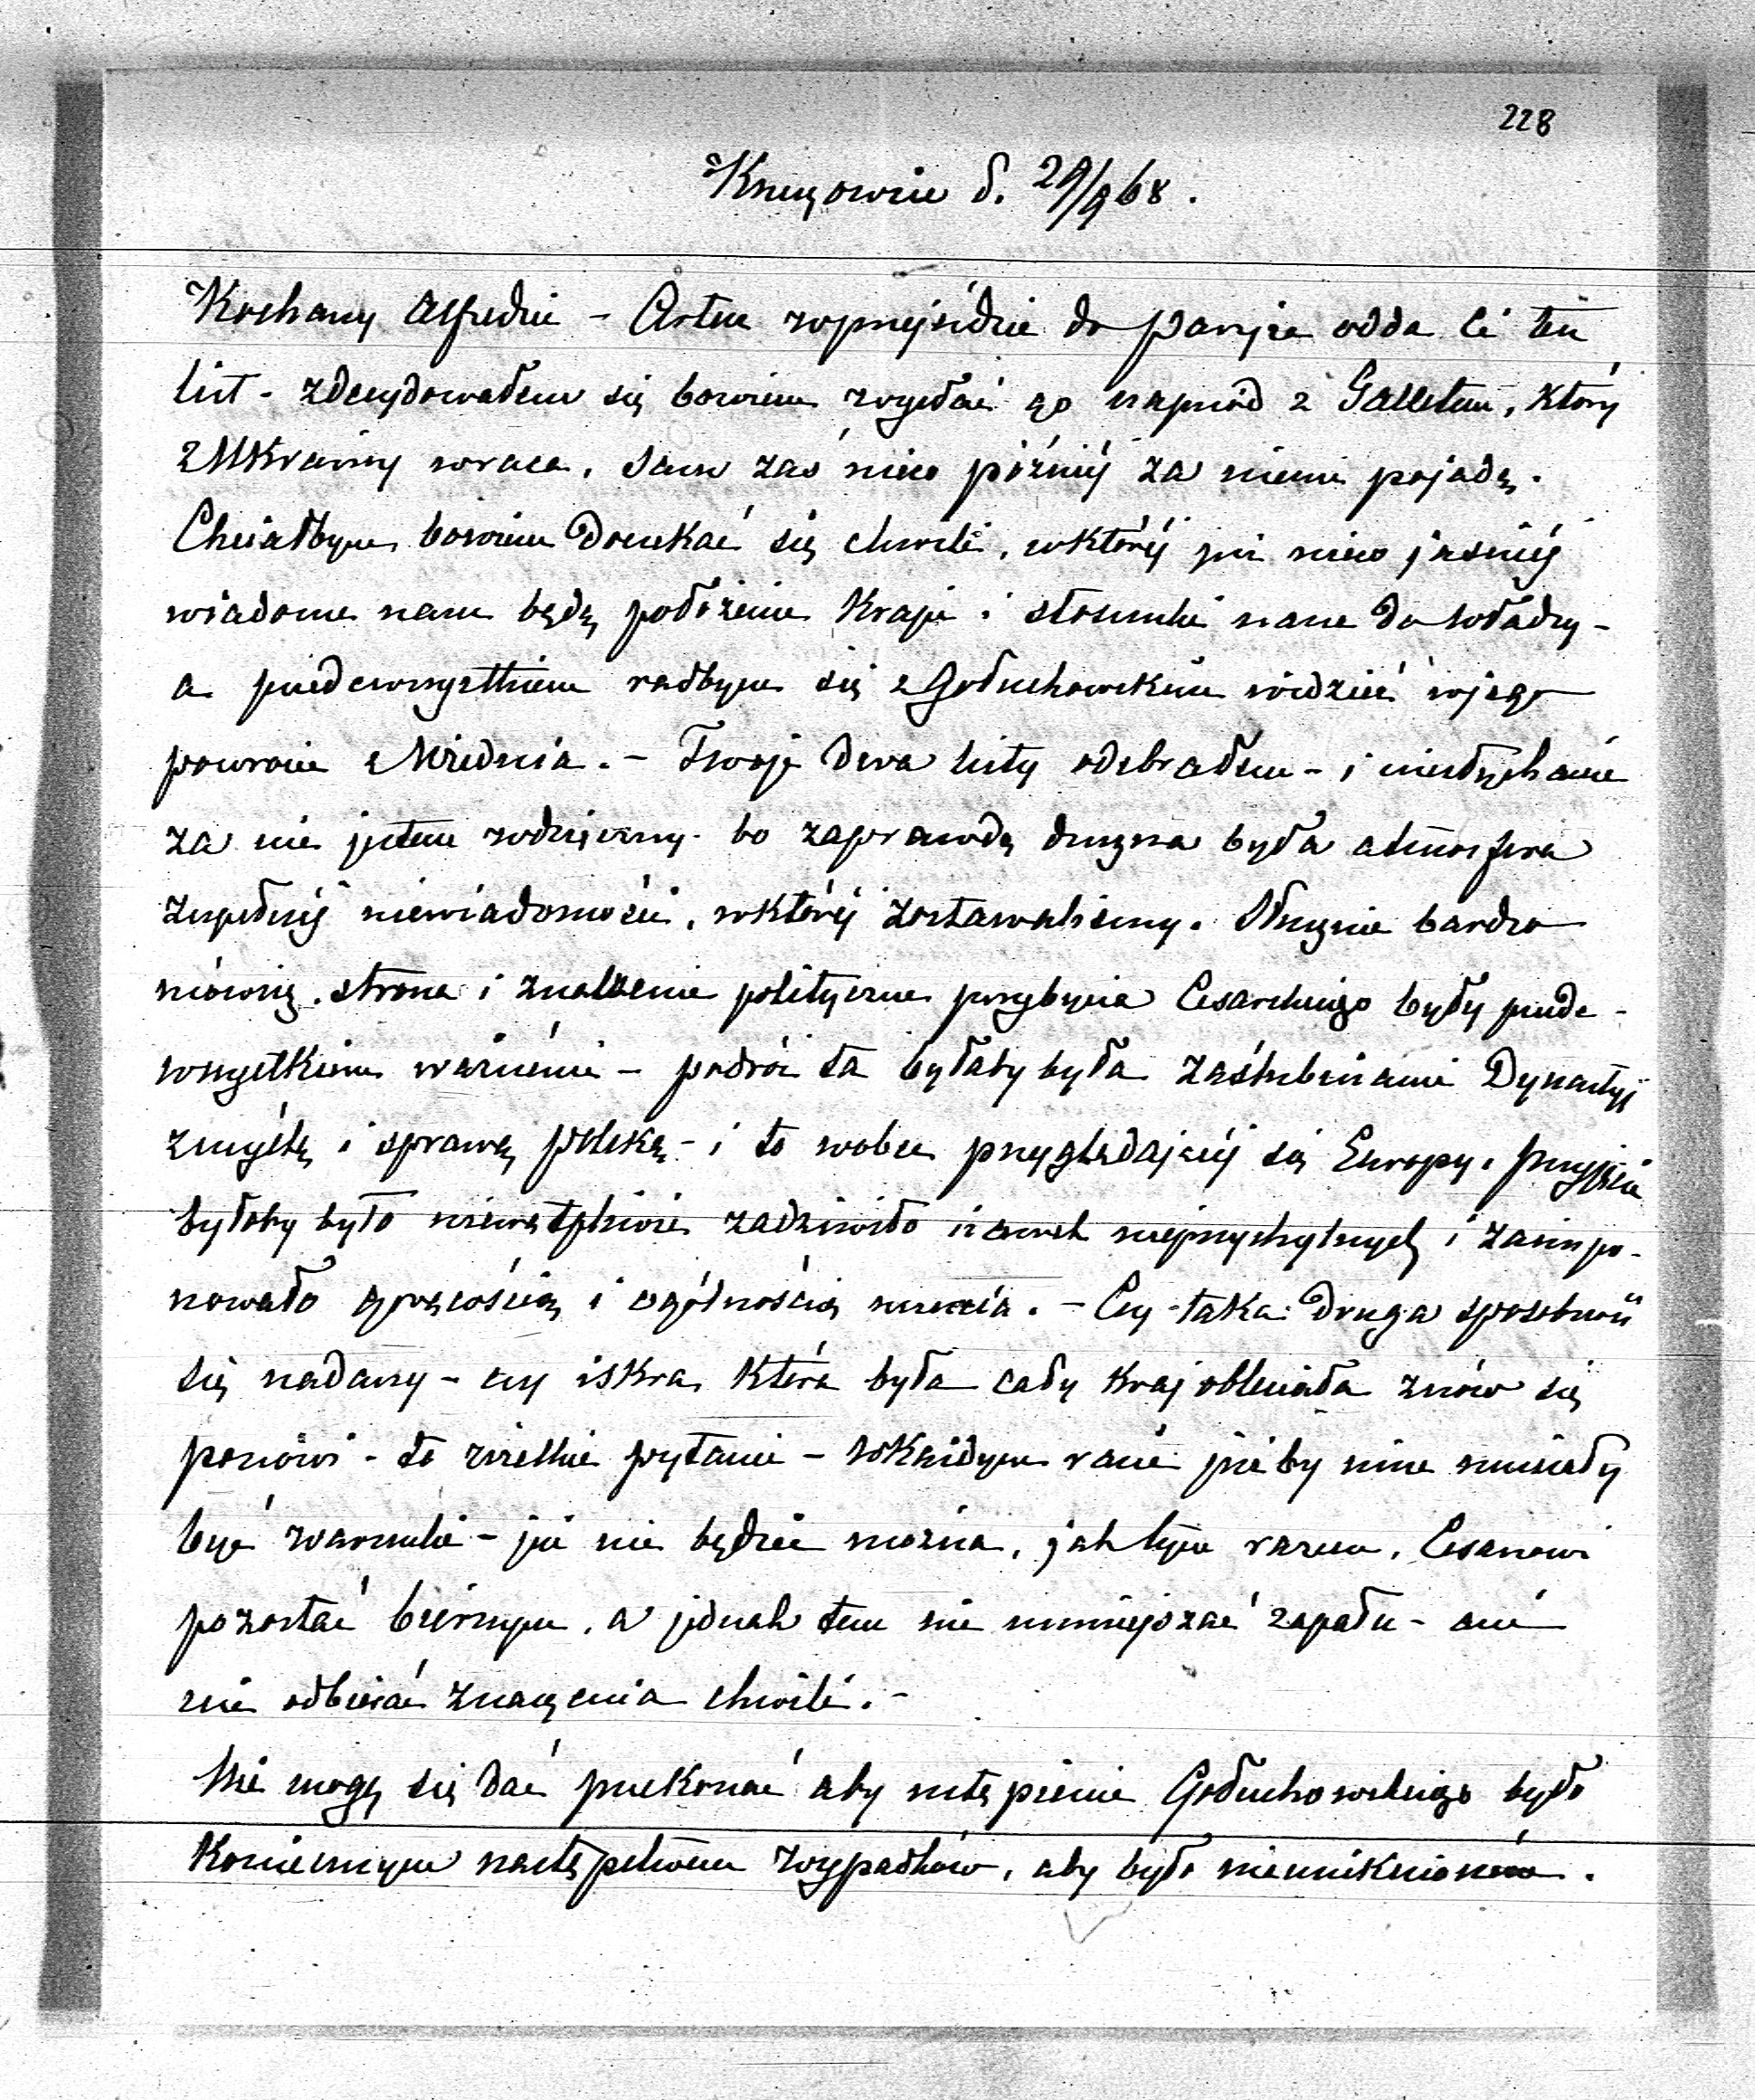 228
Krzeszowice d. 29/9 68.
Kochany Alfredzie – Artur w przejeździe do Paryża odda Ci ten
list – zdecydowałem się bowiem wysłać go naprzód z Galletem, który
z Ukrainy wraca, sam zaś nieco później za niemi pojadę.
Chciałbym bowiem doczekać się chwili, w której już nieco jaśniej
wiadome nam będą położenie Kraju i stosunki nasze do władzy –
a przedewszystkiem radbym się z Gołuchowskim widzieć w jego
powrocie z Wiednia. – Twoje dwa listy odebrałem – i niesłychanie
za nie jestem wdzięczny – bo zaprawdę duszna była atmosfera
zupełnej niewiadomości, w której zostawaliśmy. Słusznie bardzo
mówisz, strona i znaczenie polityczne przybycia Cesarskiego były przede-
wszystkiem ważnemi – podróż ta byłaby była zaślubinami Dynastyj
z myślą i sprawą polską – i to wobec przyglądającej się Europy. Przyjęcie
byłoby było niewątpliwie zadziwiło nawet nieprzychylnych i zaimpo-
nowało gorącością i ogólnością uczucia. – Czy taka druga sposobność
się nadarzy – czy iskra, która była cały kraj obleciała znów się
ponowi – to wielkie pytanie – w każdym razie jużby inne musiały
być warunki – już nie będzie można, jak tym razem, Cesarzowi
pozostać biernym, a jednak tem nie umniejszać zapału – ani
nie odbierać znaczenia chwili. –
Nie mogę się dać przekonać aby ustąpienie Gołuchowskiego było
koniecznym następstwem wypadków, aby było nieuniknionem.